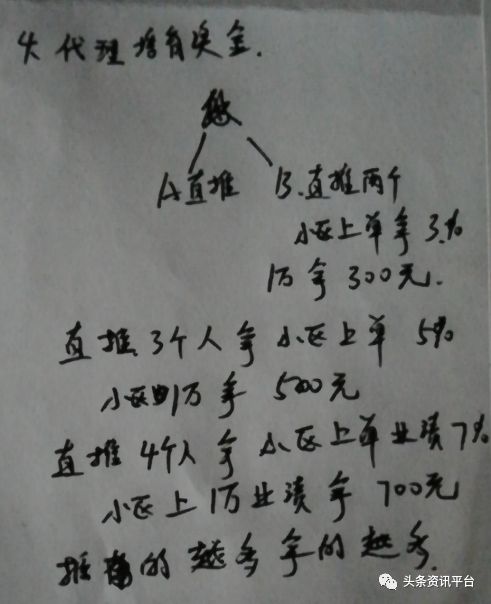 4、代理培育奖金.
您
A.直推 B.直推两个
小区上单拿3%
1万拿300元.
直推3个人拿小区上单5%
小区1万拿500元
直推4个人拿小区上单业绩7%
小区上1万业绩拿700元
推的越多拿的越多.
头条资讯平台